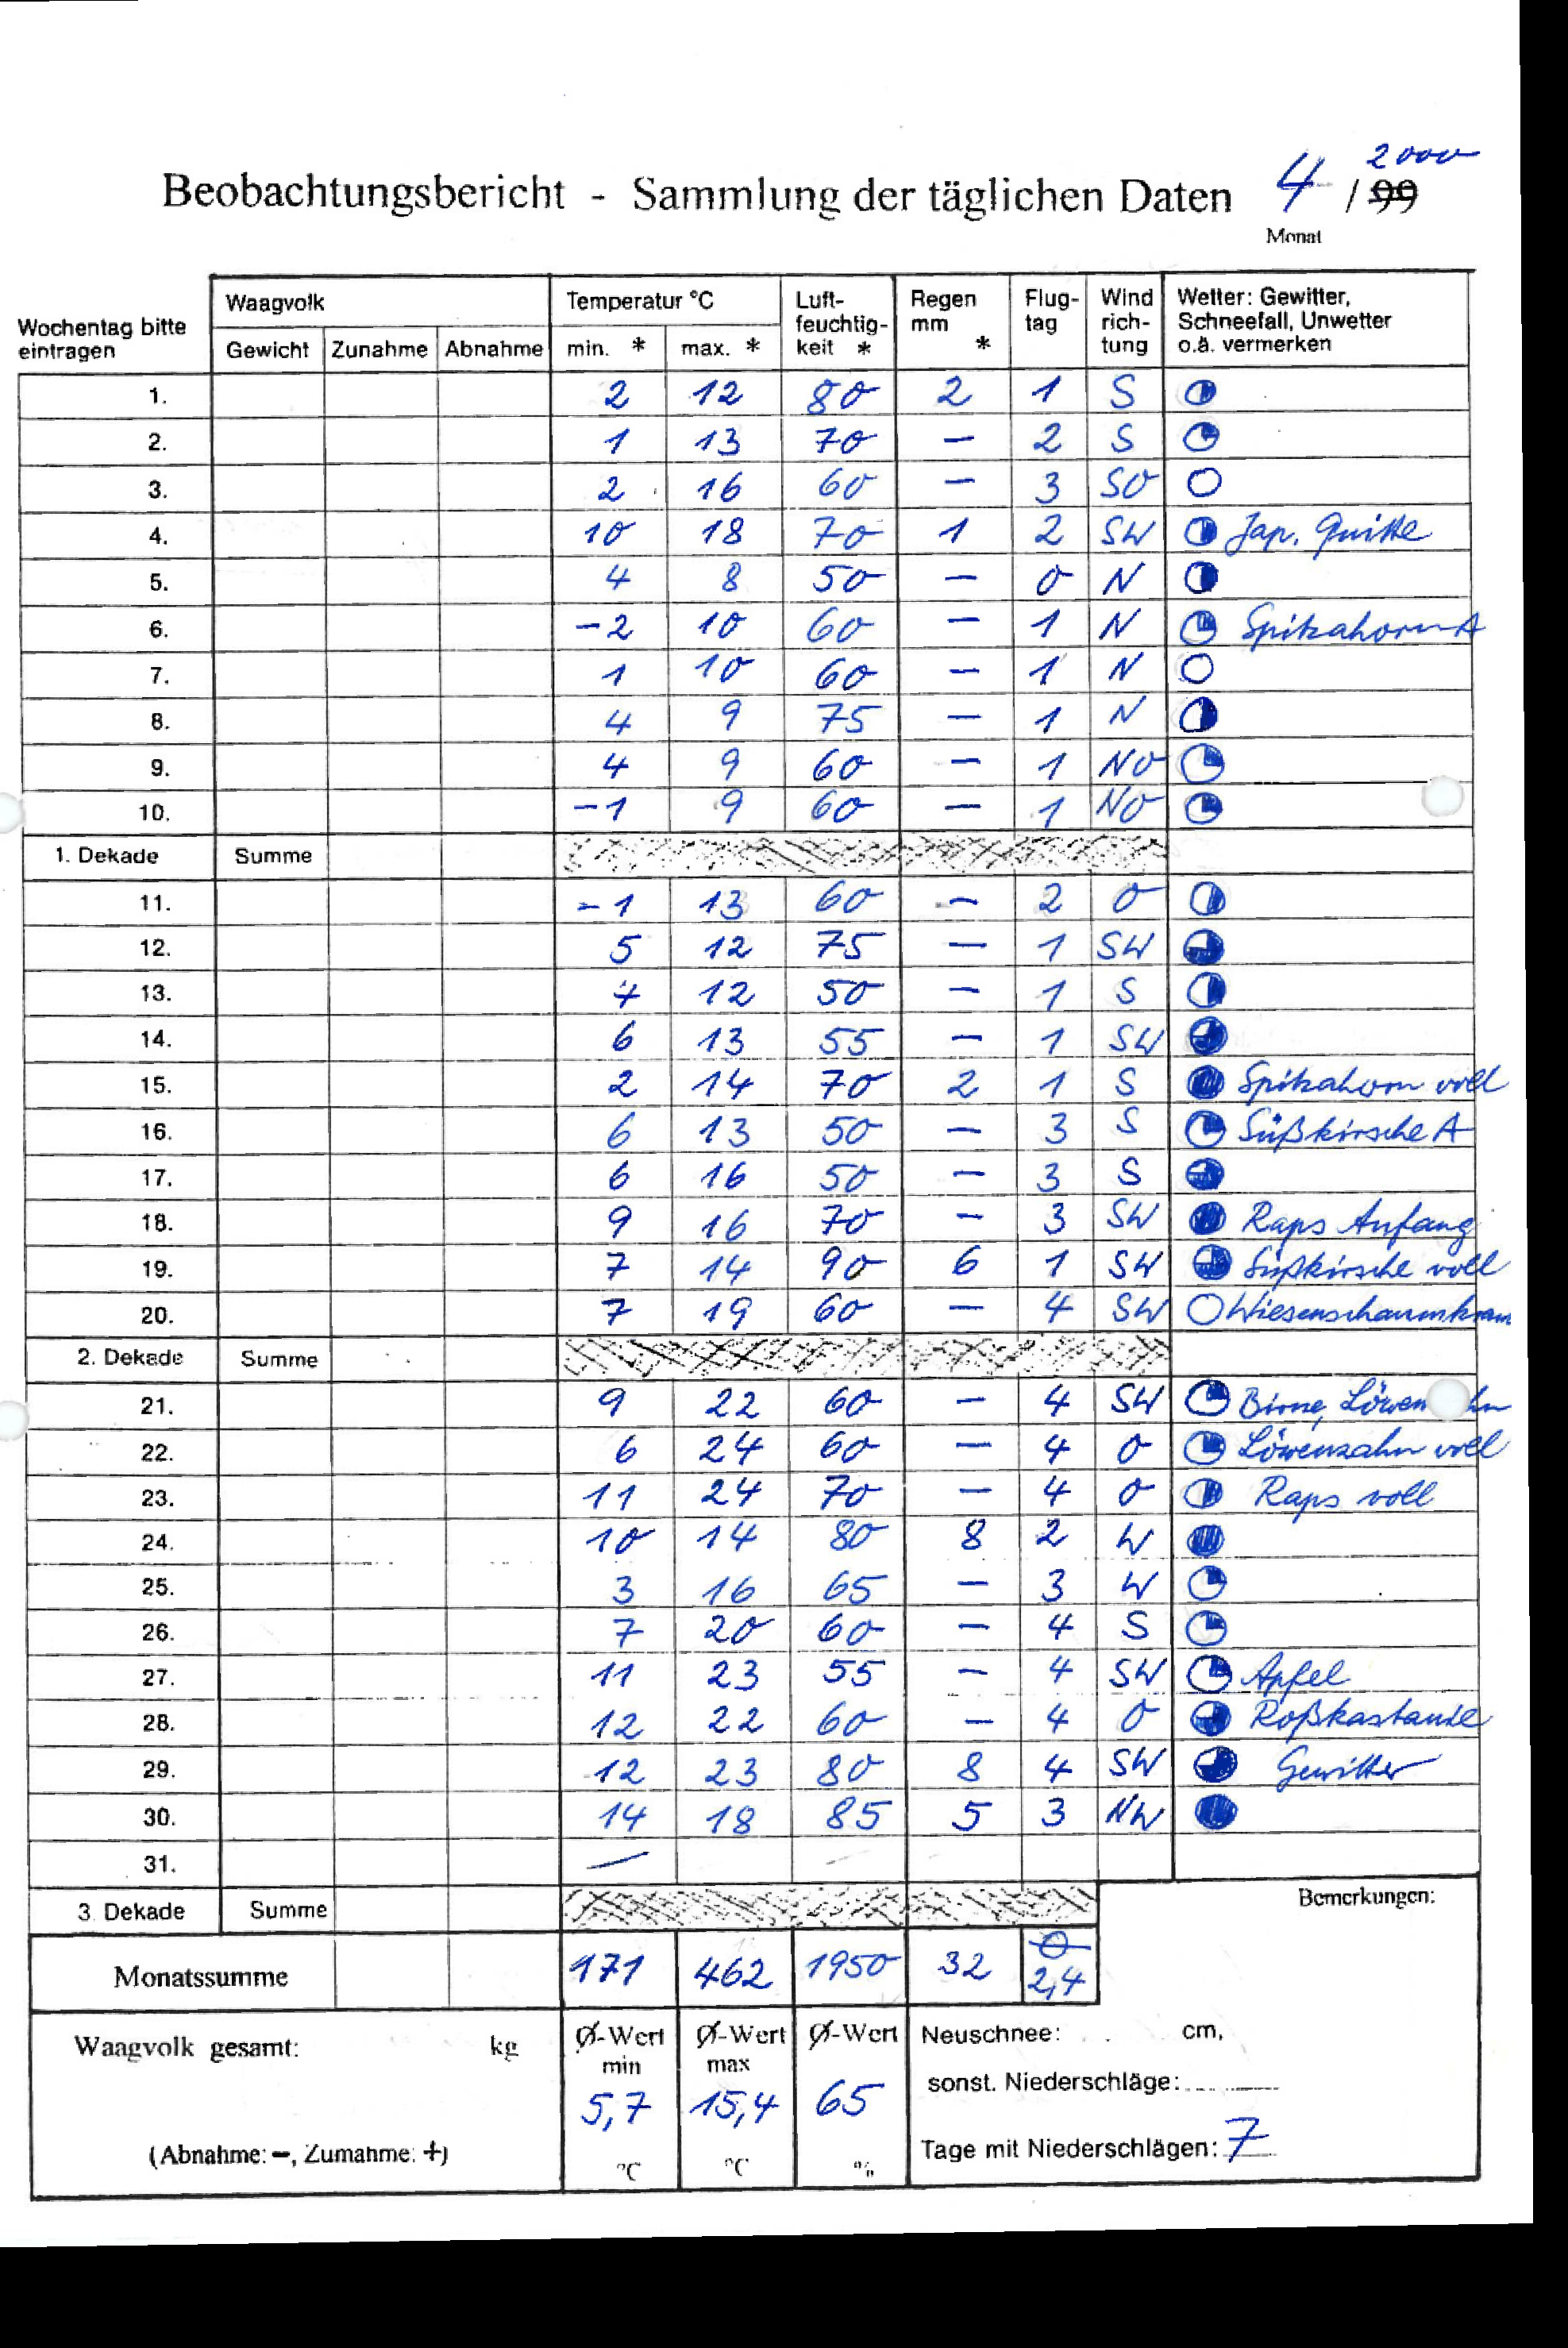 2000
Beobachtungsbericht - Sammlung der täglichen Daten 4 / 99
Monat
Wochentag bitte eintragen Waagvolk Temperatur °C Luft-feuchtig-keit * Regen mm * Flug-tag Wind rich-tung Wetter: Gewitter, Schneefall, Unwetter o.ä. vermerken
Gewicht Zunahme Abnahme min. * max. *
1. 2 12 80 2 1 S
2. 1 13 70 - 2 S
3. 2 16 60 - 3 SO
4. 10 18 70 1 2 SW Jap. Quitte
5. 4 8 50 - 0 N
6. -2 10 60 - 1 N Spitzahorn A
7. 1 10 60 - 1 N
8. 4 9 75 - 1 N
9. 4 9 60 - 1 NO
10. -1 9 60 - 1 NO
1. Dekade Summe
11. -1 13 60 - 2 O
12. 5 12 75 - 1 SW
13. 12 50 - 1 S
14. 6 13 55 - 1 SW
15. 2 14 70 2 1 S Spitzahorn voll
16. 6 13 50 - 3 S Süßkirsche A
17. 6 16 50 - 3 S
18. 9 16 70 - 3 SW Raps Anfang
19. 7 14 90 6 1 SW Süßkirsche voll
20. 7 19 60 - 4 SW Wiesenschaumkrau
2. Dekade Summe
21. 9 22 60 - 4 SW Birne, Löwen hn
22. 6 24 60 - 4 O Löwenzahn voll
23. 11 24 70 - 4 O Raps voll
24. 10 14 80 8 2 W
25. 3 16 65 - 3 W
26. 7 20 60 - 4 S
27. 11 23 55 - 4 SW Apfel
28. 12 22 60 - 4 O Roßkastanie
29. 12 23 80 8 4 SW Gewitter
30. 14 18 85 5 3 NW
31. -
3. Dekade Summe Bemerkungen:
Monatssumme 171 462 1950 32 2,4
Waagvolk gesamt: kg Ø-Wert min Ø-Wert max Ø-Wert Neuschnee: cm,
sonst. Niederschläge:
5,7 15,4 65
(Abnahme: -, Zumahme: +) °C °C % Tage mit Niederschlägen: 7